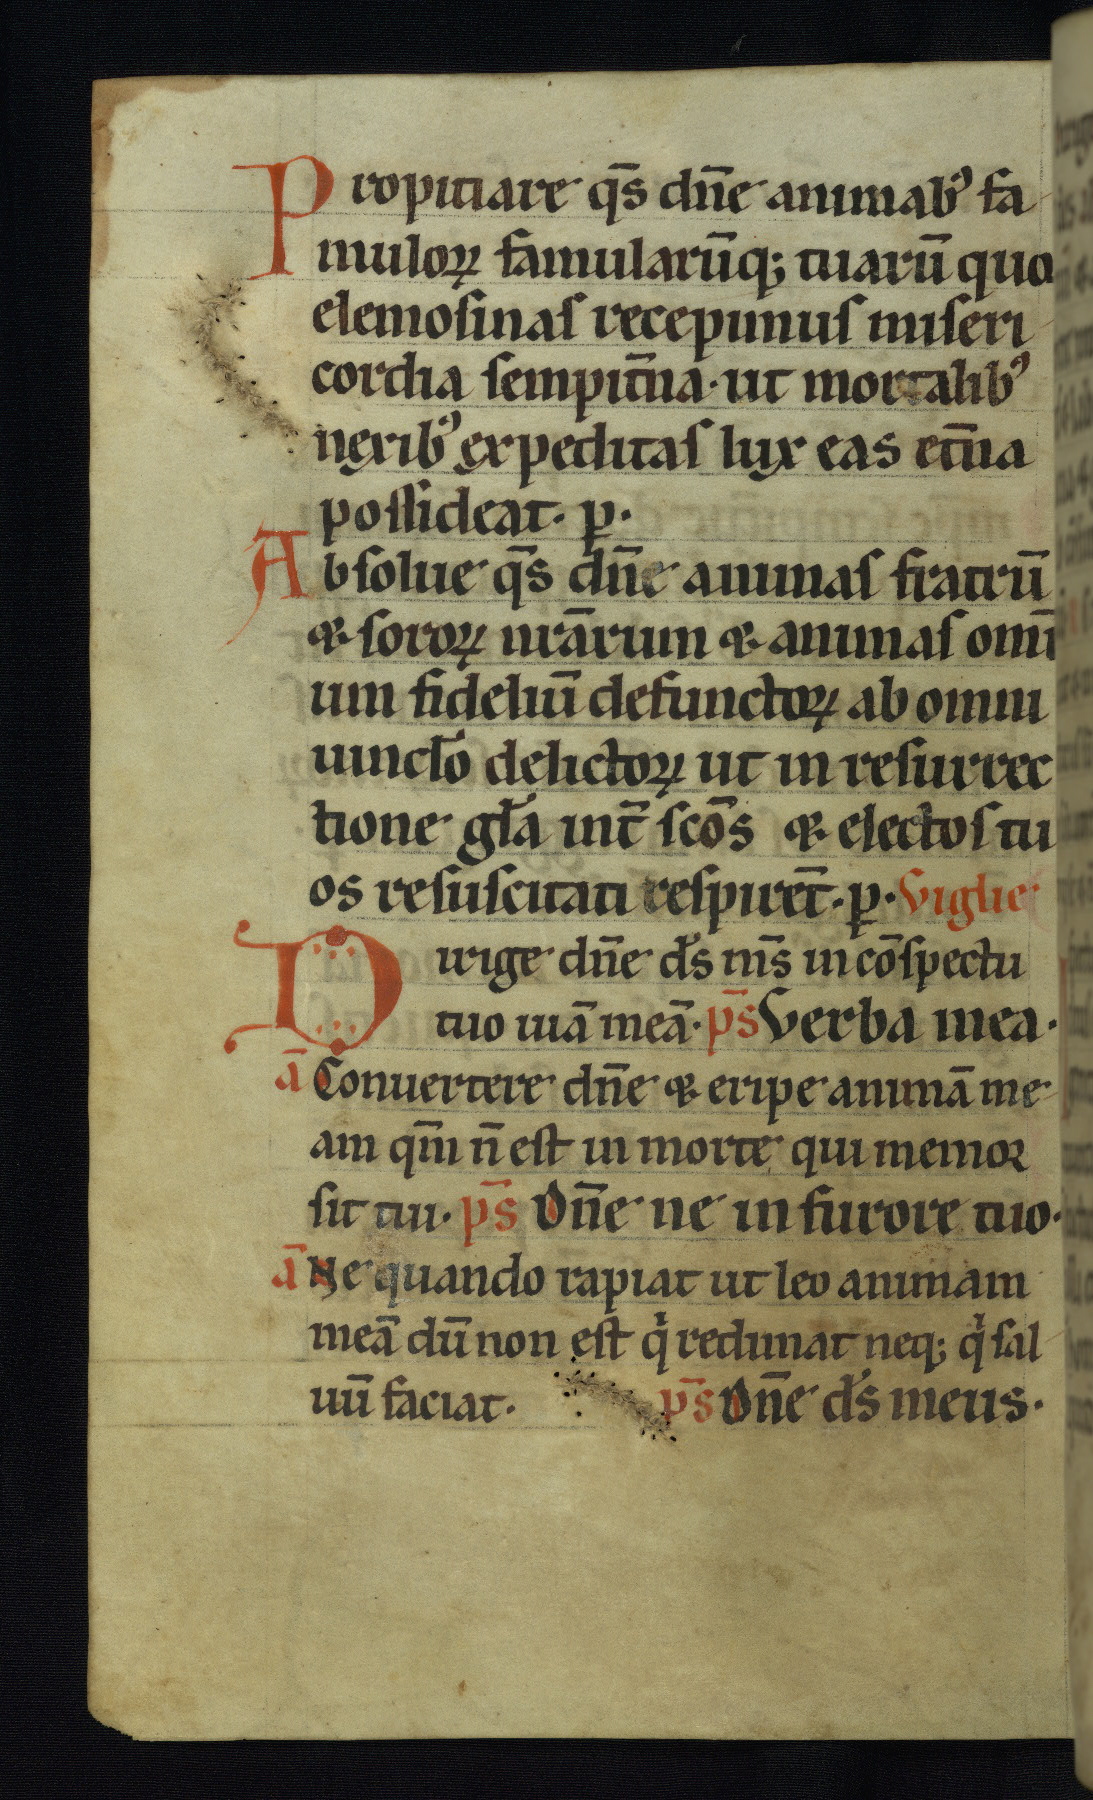 Propitiare q̄s dn̄e animabꝰ fa
muloꝝ famularūq; tuarū quo
elemoſinaſ recepimuſ miſeri
cordia ſempit̄na·ut mortalibꝰ
nexibꝰ expeditaſ lux eas et̄na
poſſideat· p̱·
Abſolue q̄s dn̄e animaſ fratrū
⁊ ſoroꝝ nr̄arum ⁊ animaſ omī
um fideliū defunctoꝝ ab omni
uincl̄o delictoꝝ ut in reſurrec
tione gl̄a int̄ ſcōs ⁊ electoſ tu
os reſuſcitati reſpirēt·p̱· Viglie
Dirige dn̄e d̄s m̄s in cōſpectu
tuo uiā meā· p̄s Verba mea·
ā Conuertere dn̄e ⁊ eripe animā me
am qm̄ n̄ eſt in morte qui memoꝛ
ſit tui· p̄s Dn̄e ne in furore tuo·
ā Ne quando rapiat ut leo animam
meā dū non eſt qͥ redimat neq; qͥ ſal
uū faciat· p̄s Dn̄e d̄s meus·